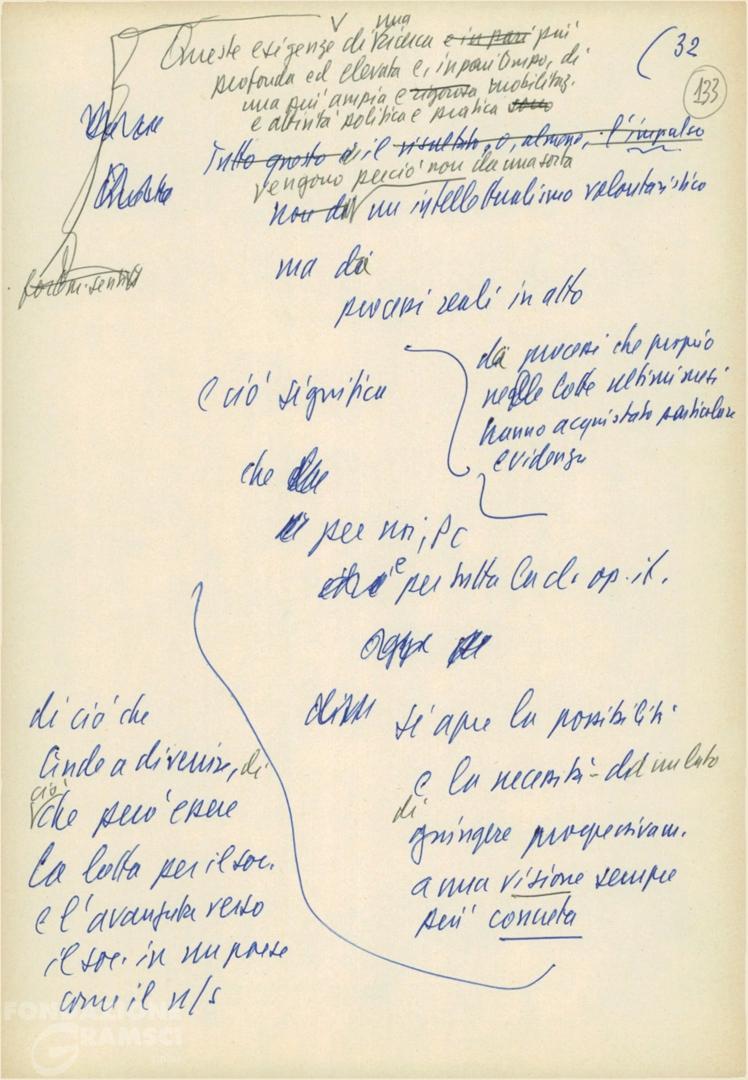 32
133
Queste esigenze di una ricerca e in pari più
profonda ed elevata e, in pari tempo, di
una più ampia e rigorosa mobilitaz.
e attività politica e pratica
Tutto questo è il risultato, o, almeno, l'impulso
vengono perciò non da una sorta
non da un intellettualismo volontaristico
ma da
processi reali in atto
da processi che proprio
negli ultimi mesi
hanno acquistato particolare
evidenza
e ciò significa
che
per noi, PC
e per tutta la cl. op. it.
oggi
si apre la possibilità
e la necessità - d'altro lato
di
giungere progressivam.
a una visione sempre
più concreta
di ciò che
tende a divenire, di
ciò
che può essere
la lotta per il soc.
e l'avanzata verso
il soc. in un paese
come il n/s
FONDAZIONE
GRAMSCI